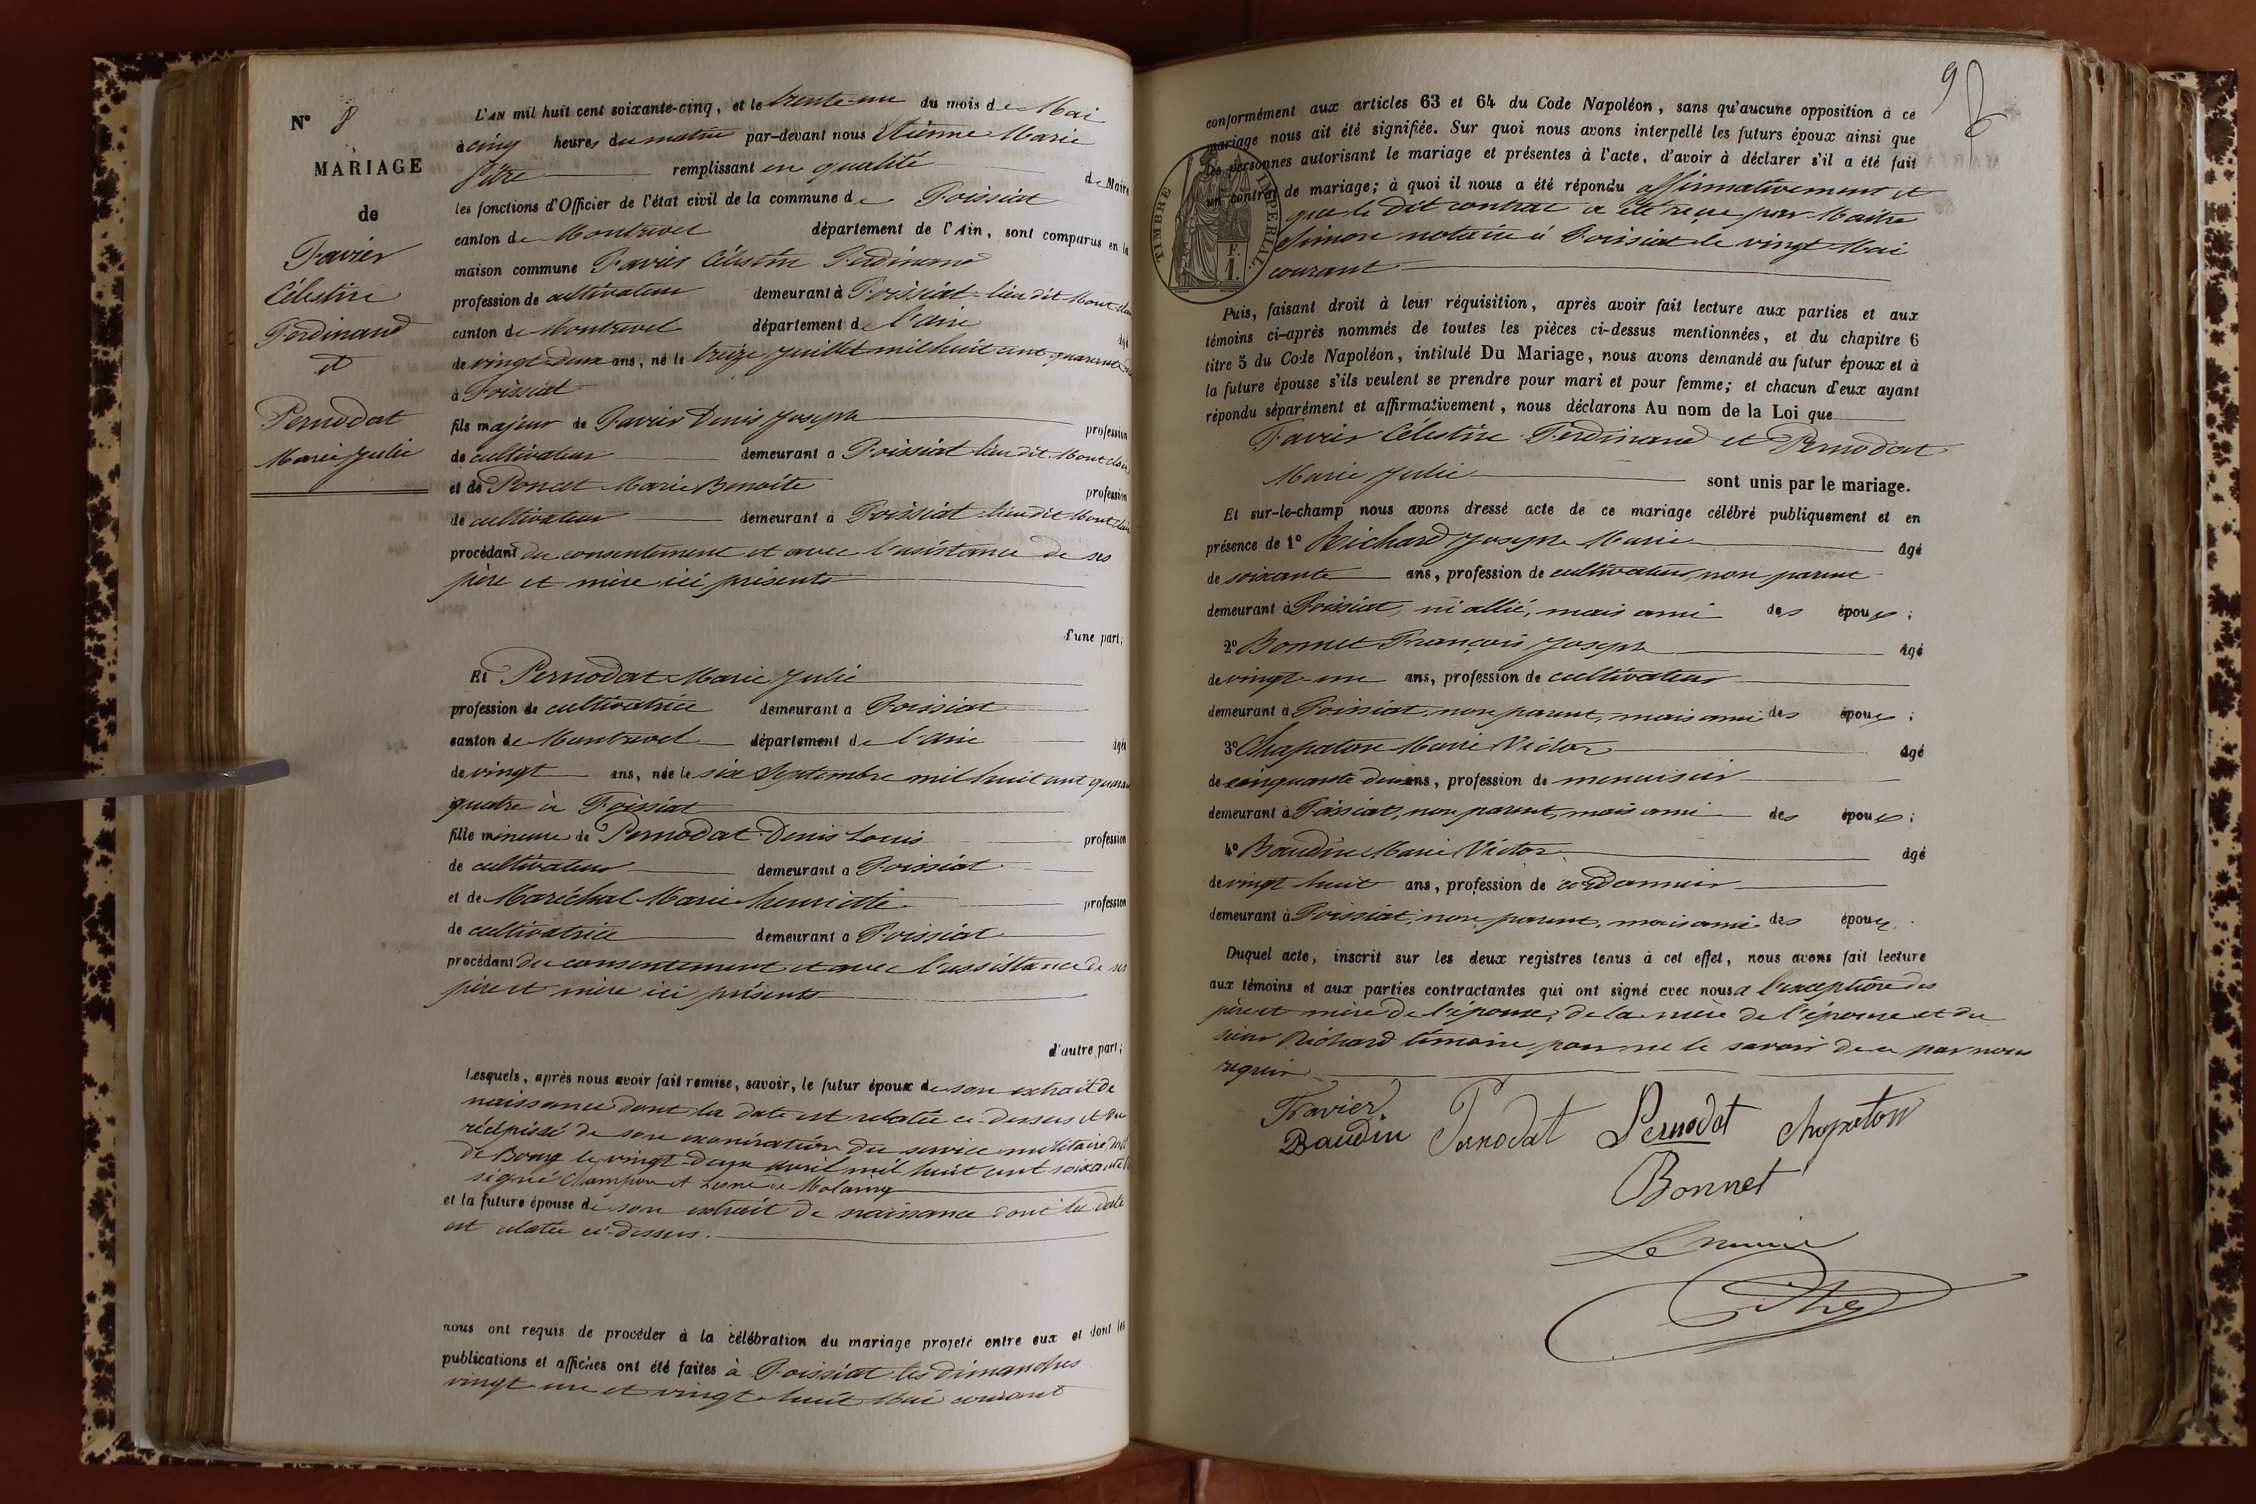 N° 8
MARIAGE
de
Favier
Célestin
Ferdinand
et
Pernodat
Marie Julie
L'AN mil huit cent soixante-cinq, et le trente-un du mois de Mai
à cinq heures du matin par-devant nous Etienne Marie
Pitre remplissant en qualité de Maire
les fonctions d'Officier de l'état civil de la commune de Foissiat
canton de Montrevel département de l'Ain, sont comparus en la
maison commune Favier Célestin Ferdinand
profession de cultivateur demeurant à Foissiat lieu dit Mont
canton de Montrevel département de l'Ain âgé
de vingt deux ans, né le treize Juillet mil huit cent quarante
à Foissiat
fils majeur de Favier Denis Joseph profession
de cultivateur demeurant à Foissiat lieu dit Mont
et de Poncet Marie Benoîte profession
de cultivateur demeurant à Foissiat lieu dit Mont
procédant du consentement et avec l'assistance de ses
père et mère ici présents
d'une part;
Et Pernodat Marie Julie
profession de cultivatrice demeurant à Foissiat
canton de Montrevel département de l'Ain âgée
de vingt ans, née le six Septembre mil huit cent quarante
quatre à Foissiat
fille mineure de Pernodat Denis Louis profession
de cultivateur demeurant à Foissiat
et de Maréchal Marie henriette profession
de cultivatrice demeurant à Foissiat
procédant du consentement et avec l'assistance de ses
père et mère ici présents
d'autre part;
Lesquels, après nous avoir fait remise, savoir, le futur époux de son extrait de
naissance dont la date est relatée ci-dessus et du
récépissé de son exonération du service militaire
de Bourg le vingt-deux avril mil huit cent soixante
signé et
et la future épouse de son extrait de naissance dont la date
est relatée ci-dessus.
nous ont requis de procéder à la célébration du mariage projeté entre eux et dont les
publications et affiches ont été faites à Foissiat les dimanches
vingt-un et vingt-huit Mai courant
9
TIMBRE IMPERIAL
F.
1.
conformément aux articles 63 et 64 du Code Napoléon, sans qu'aucune opposition à ce
mariage nous ait été signifiée. Sur quoi nous avons interpellé les futurs époux ainsi que
les personnes autorisant le mariage et présentes à l'acte, d'avoir à déclarer s'il a été fait
un contrat de mariage; à quoi il nous a été répondu affirmativement et
que le dit contrat a été reçu par Maître
Simon notaire à Foissiat le vingt Mai
courant
Puis, faisant droit à leur réquisition, après avoir fait lecture aux parties et aux
témoins ci-après nommés de toutes les pièces ci-dessus mentionnées, et du chapitre 6
titre 5 du Code Napoléon, intitulé Du Mariage, nous avons demandé au futur époux et à
la future épouse s'ils veulent se prendre pour mari et pour femme; et chacun d'eux ayant
répondu séparément et affirmativement, nous déclarons Au nom de la Loi que
Favier Célestin Ferdinand et Pernodat
Marie Julie sont unis par le mariage.
Et sur-le-champ nous avons dressé acte de ce mariage célébré publiquement et en
présence de 1° Richard Joseph Marie âgé
de soixante ans, profession de cultivateur, non parent
demeurant à Foissiat, ni allié, mais ami des époux;
2° Bonnet François Joseph âgé
de vingt-un ans, profession de cultivateur
demeurant à Foissiat, non parent, mais ami des époux;
3° Chapaton Marie Victor âgé
de cinquante deux ans, profession de menuisier
demeurant à Foissiat, non parent, mais ami des époux;
4° Baudin Marie Victor âgé
de vingt huit ans, profession de cordonnier
demeurant à Foissiat, non parent, mais ami des époux.
Duquel acte, inscrit sur les deux registres tenus à cet effet, nous avons fait lecture
aux témoins et aux parties contractantes qui ont signé avec nous à l'exception des
père et mère de l'époux, de la mère de l'épouse et du
sieur Richard témoin pour ne le savoir de ce par nous
requis
Favier. Pernodat Pernodat Chapaton
Baudin
Bonnet
Le maire
Pitre